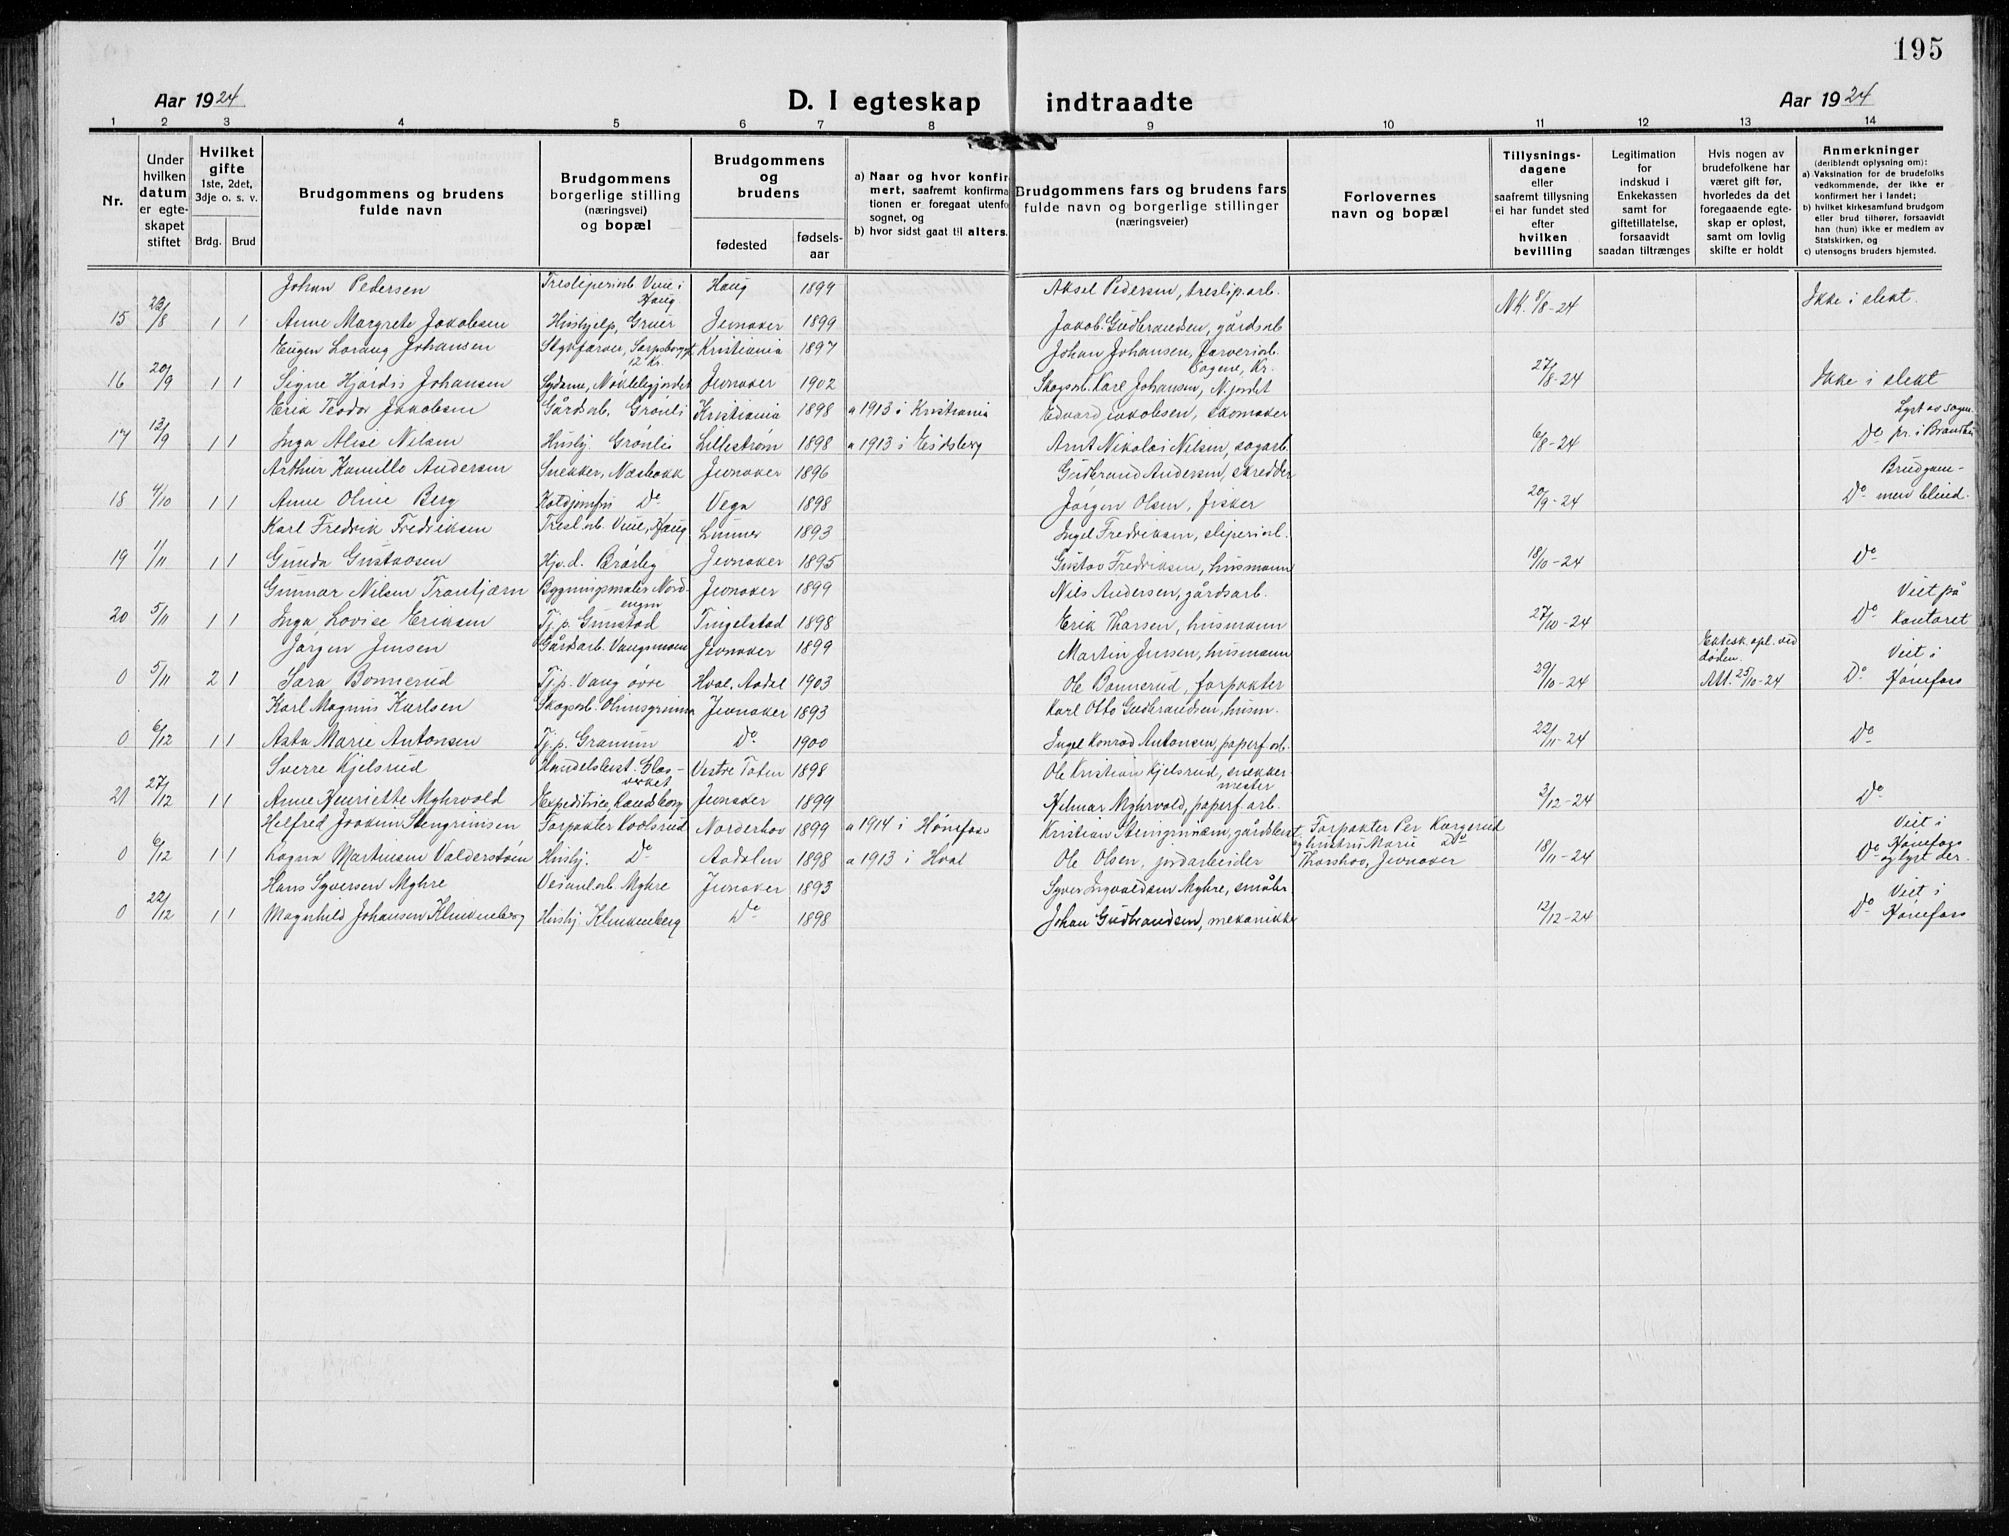 195
Aar 1924
D. I egteskap indtraadte
Aar 1924
1 2 3 4 5 6 7 8 9 10 11 12 13 14
Nr.
Under hvilken datum er egteskapet stiftet
Hvilket gifte 1ste, 2det, 3dje o. s. v.
Brdg. Brud
Brudgommens og brudens fulde navn
Brudgommens borgerlige stilling (næringsvei) og bopæl
Brudgommens og brudens
fødested
fødselsaar
a) Naar og hvor konfirmert, saafremt konfirmationen er foregaat utenfor sognet, og
b) hvor sidst gaat til alters.
Brudgommens fars og brudens fars fulde navn og borgerlige stillinger (næringsveier)
Forlovernes navn og bopæl
Tillysningsdagene eller saafremt tillysning ei har fundet sted efter hvilken bevilling
Legitimation for indskud i Enkekassen samt for giftetillatelse, forsaavidt saadan tiltrænges
Hvis nogen av brudefolkene har været gift før, hvorledes da det foregaaende egteskap er opløst, samt om lovlig skifte er holdt
Anmerkninger (deriblendt oplysning om):
a) Vaksination for de brudefolks vedkommende, der ikke er konfirmert her i landet;
b) hvilket kirkesamfund brudgom eller brud tilhører, forsaavidt han (hun) ikke er medlem av Statskirken, og
c) utensogns bruders hjemsted.
Johan Pedersen Tresliperiarb. Veme i Haug Haug 1899 Aksel Pedersen, treslip.arb.
15 23/8 1 1 Anne Margrete Jakobsen Hushjelp, Gruer Jevnaker 1899 Jakob Gudbrandsen, gårdsarb N.K. 8/8-24 Ikke i slekt.
Eugen Lorang Johansen Stykfarver, Sarpsborggt. 12 Kr. Kristiania 1897 Johan Johansen, farveriarb. Sagene, Kr.
16 20/9 1 1 Signe Hjørdis Johansen Sydame, Nøklebyjordet Jevnaker 1902 Skogsarb. Karl Johansen, N.jordet 27/8-24 Ikke i slekt
Erik Teodor Jakobsen Gårdsarb. Grønli Kristiania 1898 a 1913 i Kristiania Edvard Jakobsen, skomaker
17 13/9 1 1 Inga Alise Nilsen Hushj. Grønlie Lillestrøm 1898 a 1913 i Eidsberg Arnt Nikolai Nilsen, sagarb. 6/8-24 Do Lyst av sogn. pr. i Brandbu
Arthur Kamillo Andersen Snekker, Næsbakk Jevnaker 1896 Gudbrand Andersen, skredder
18 4/10 1 1 Anne Oline Berg Do Vega 1898 Jørgen Olsen, fisker 20/9-24 Do Brudgommen blind.
Karl Fredrik Fredriksen Tresl.arb. Veme, Haug Lunner 1893 Ingel Fredriksen, sliperiarb.
19 1/11 1 1 Gunda Gustavsen Hjv.d. Brørby Jevnaker 1895 Gustav Fredriksen, husmann 18/10-24 Do
Gunnar Nilsen Trantjærn Bygningsmaler Nordengen Jevnaker 1899 Nils Andersen, gårdsarb.
20 5/11 1 1 Inga Lovise Eriksen Tj.p. Gunstad Tingelstad 1898 Erik Tharsen, husmann 27/10-24 Do Viet på kontoret
Jørgen Jensen Gårdsarb. Vangsmoen Jevnaker 1899 Martin Jensen, husmann Ektesk. opl. ved døden.
0 5/11 2 1 Sara Bonnerud Tj.p. Vang øvre Hval, Aadal 1903 Ole Bonnerud, forpakter 29/10-24 Att. 25/10-24 Do Viet i Hønefoss
Karl Magnus Karlsen Skogsarb. Jevnaker 1893 Karl Otto Gudbrandsen, husm.
0 6/12 1 1 Asta Marie Antonsen Tj.p. Granum Do 1900 Ingel Konrad Antonsen, paperf.arb. 22/11-24 Do
Sverre Kjelsrud Handelsbest. Glasverket Vestre Toten 1898 Ole Kristian Kjelsrud, snekkermester
21 27/12 1 1 Anne Henriette Myhrvold Expeditrice, Randsborg Jevnaker 1899 Hilmar Myhrvold, paperf.arb. 3/12-24 Do
Helfred Joakum Stengrimsen Forpakter Koolsrud Norderhov 1899 a 1914 i Hønefoss Kristian Stengrimsen, gårdbest. Forpakter Per Korgerud
0 6/12 1 1 Ragna Martinsen Valderstøen Hushj. Do Aadalen 1898 a 1913 i Hval Ole Olsen, jordarbeider og hustru Marie Do Thorshov, Jevnaker 18/11-24 Do Viet i Hønefoss og lyst der.
Hans Syversen Myhre Veiarb. Myhre Jevnaker 1893 Syver Ingvaldsen Myhre, småbr.
0 22/12 1 1 Magnhild Johansen Klinkenberg Hushj. Klinkenberg Do 1898 Johan Gudbrandsen, mekaniker 12/12-24 Do Viet i Hønefoss